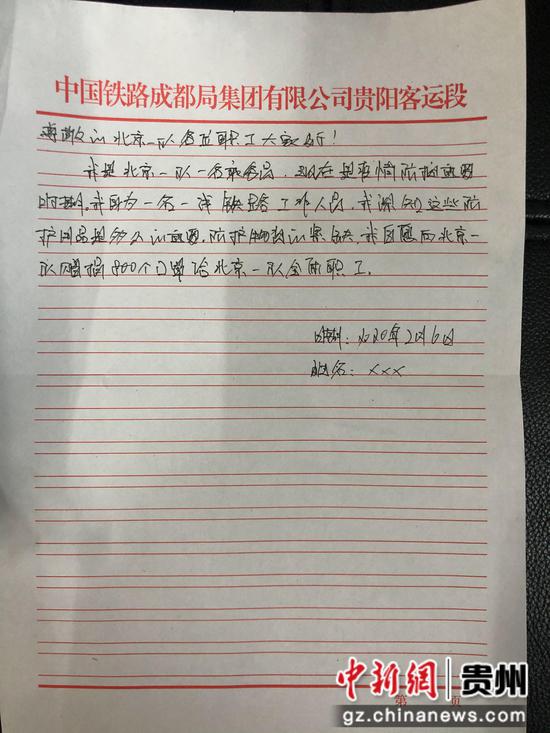 中国铁路成都局集团有限公司贵阳客运段
尊敬的北京一队各位职工大家好！
我是北京一队一名乘务员，现在是疫情防控重要
时期。我身为一名一线铁路工作人员，我深知这些防
护用品是多么的重要，防护物资的紧缺，我自愿向北京一
队捐赠800个口罩给北京一队全体职工。
日期：2020年2月6日
姓名：xxx
中新網 贵州
gz.chinanews.com
第 页